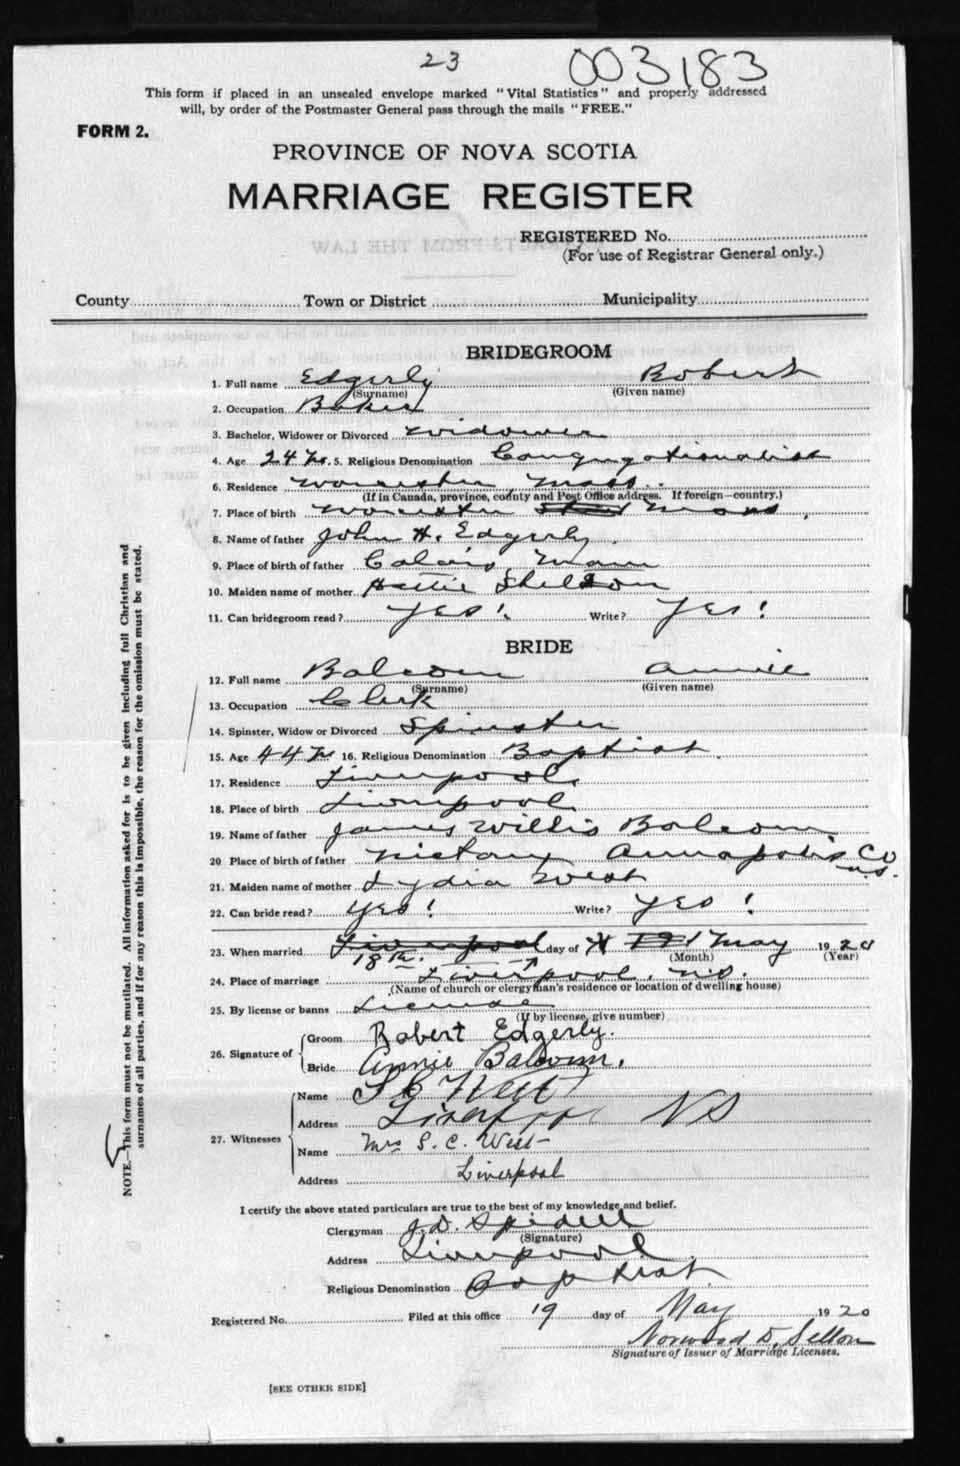 23 003183
This form if placed in an unsealed envelope marked "Vital Statistics" and properly addressed
will, by order of the Postmaster General pass through the mails "FREE."
FORM 2.
PROVINCE OF NOVA SCOTIA
MARRIAGE REGISTER
REGISTERED No.
(For use of Registrar General only.)
County Town or District Municipality
BRIDEGROOM
1. Full name Edgerly Robert
(Surname) (Given name)
2. Occupation Baker
3. Bachelor, Widower or Divorced Widower
4. Age 24 yrs. 5. Religious Denomination Congregationalist
6. Residence Worcester Mass.
(If in Canada, province, county and Post Office address. If foreign—country.)
7. Place of birth Worcester Mass.
8. Name of father John H. Edgerly.
9. Place of birth of father Calais, Main
10. Maiden name of mother Hattie Sheldon
11. Can bridegroom read? Yes! Write? Yes!
BRIDE
12. Full name Balcom Annie
(Surname) (Given name)
13. Occupation Clerk
14. Spinster, Widow or Divorced Spinster
15. Age 44 yrs 16. Religious Denomination Baptist
17. Residence Liverpool
18. Place of birth Liverpool
19. Name of father James Willis Balcom
20 Place of birth of father Nictaux Annapolis Co
N.S.
21. Maiden name of mother Lydia West
22. Can bride read? Yes! Write? Yes!
23. When married Liverpool day of May 1920
18th. (Month) (Year)
24. Place of marriage Liverpool, N.S.
(Name of church or clergyman's residence or location of dwelling house)
25. By license or banns License
(If by license, give number)
26. Signature of Groom Robert Edgerly.
Bride Annie Balcom.
27. Witnesses Name S C West
Address Liverpool NS
Name Mrs S. C. West
Address Liverpool
NOTE.—This form must not be mutilated. All information asked for is to be given including full Christian and
surnames of all parties, and if for any reason this is impossible, the reason for the omission must be stated.
I certify the above stated particulars are true to the best of my knowledge and belief.
Clergyman J. D. Spidell
(Signature)
Address Liverpool
Religious Denomination Baptist
Registered No. Filed at this office 19 day of May 1920
Norwood D. Sellon
Signature of Issuer of Marriage Licenses.
[SEE OTHER SIDE]